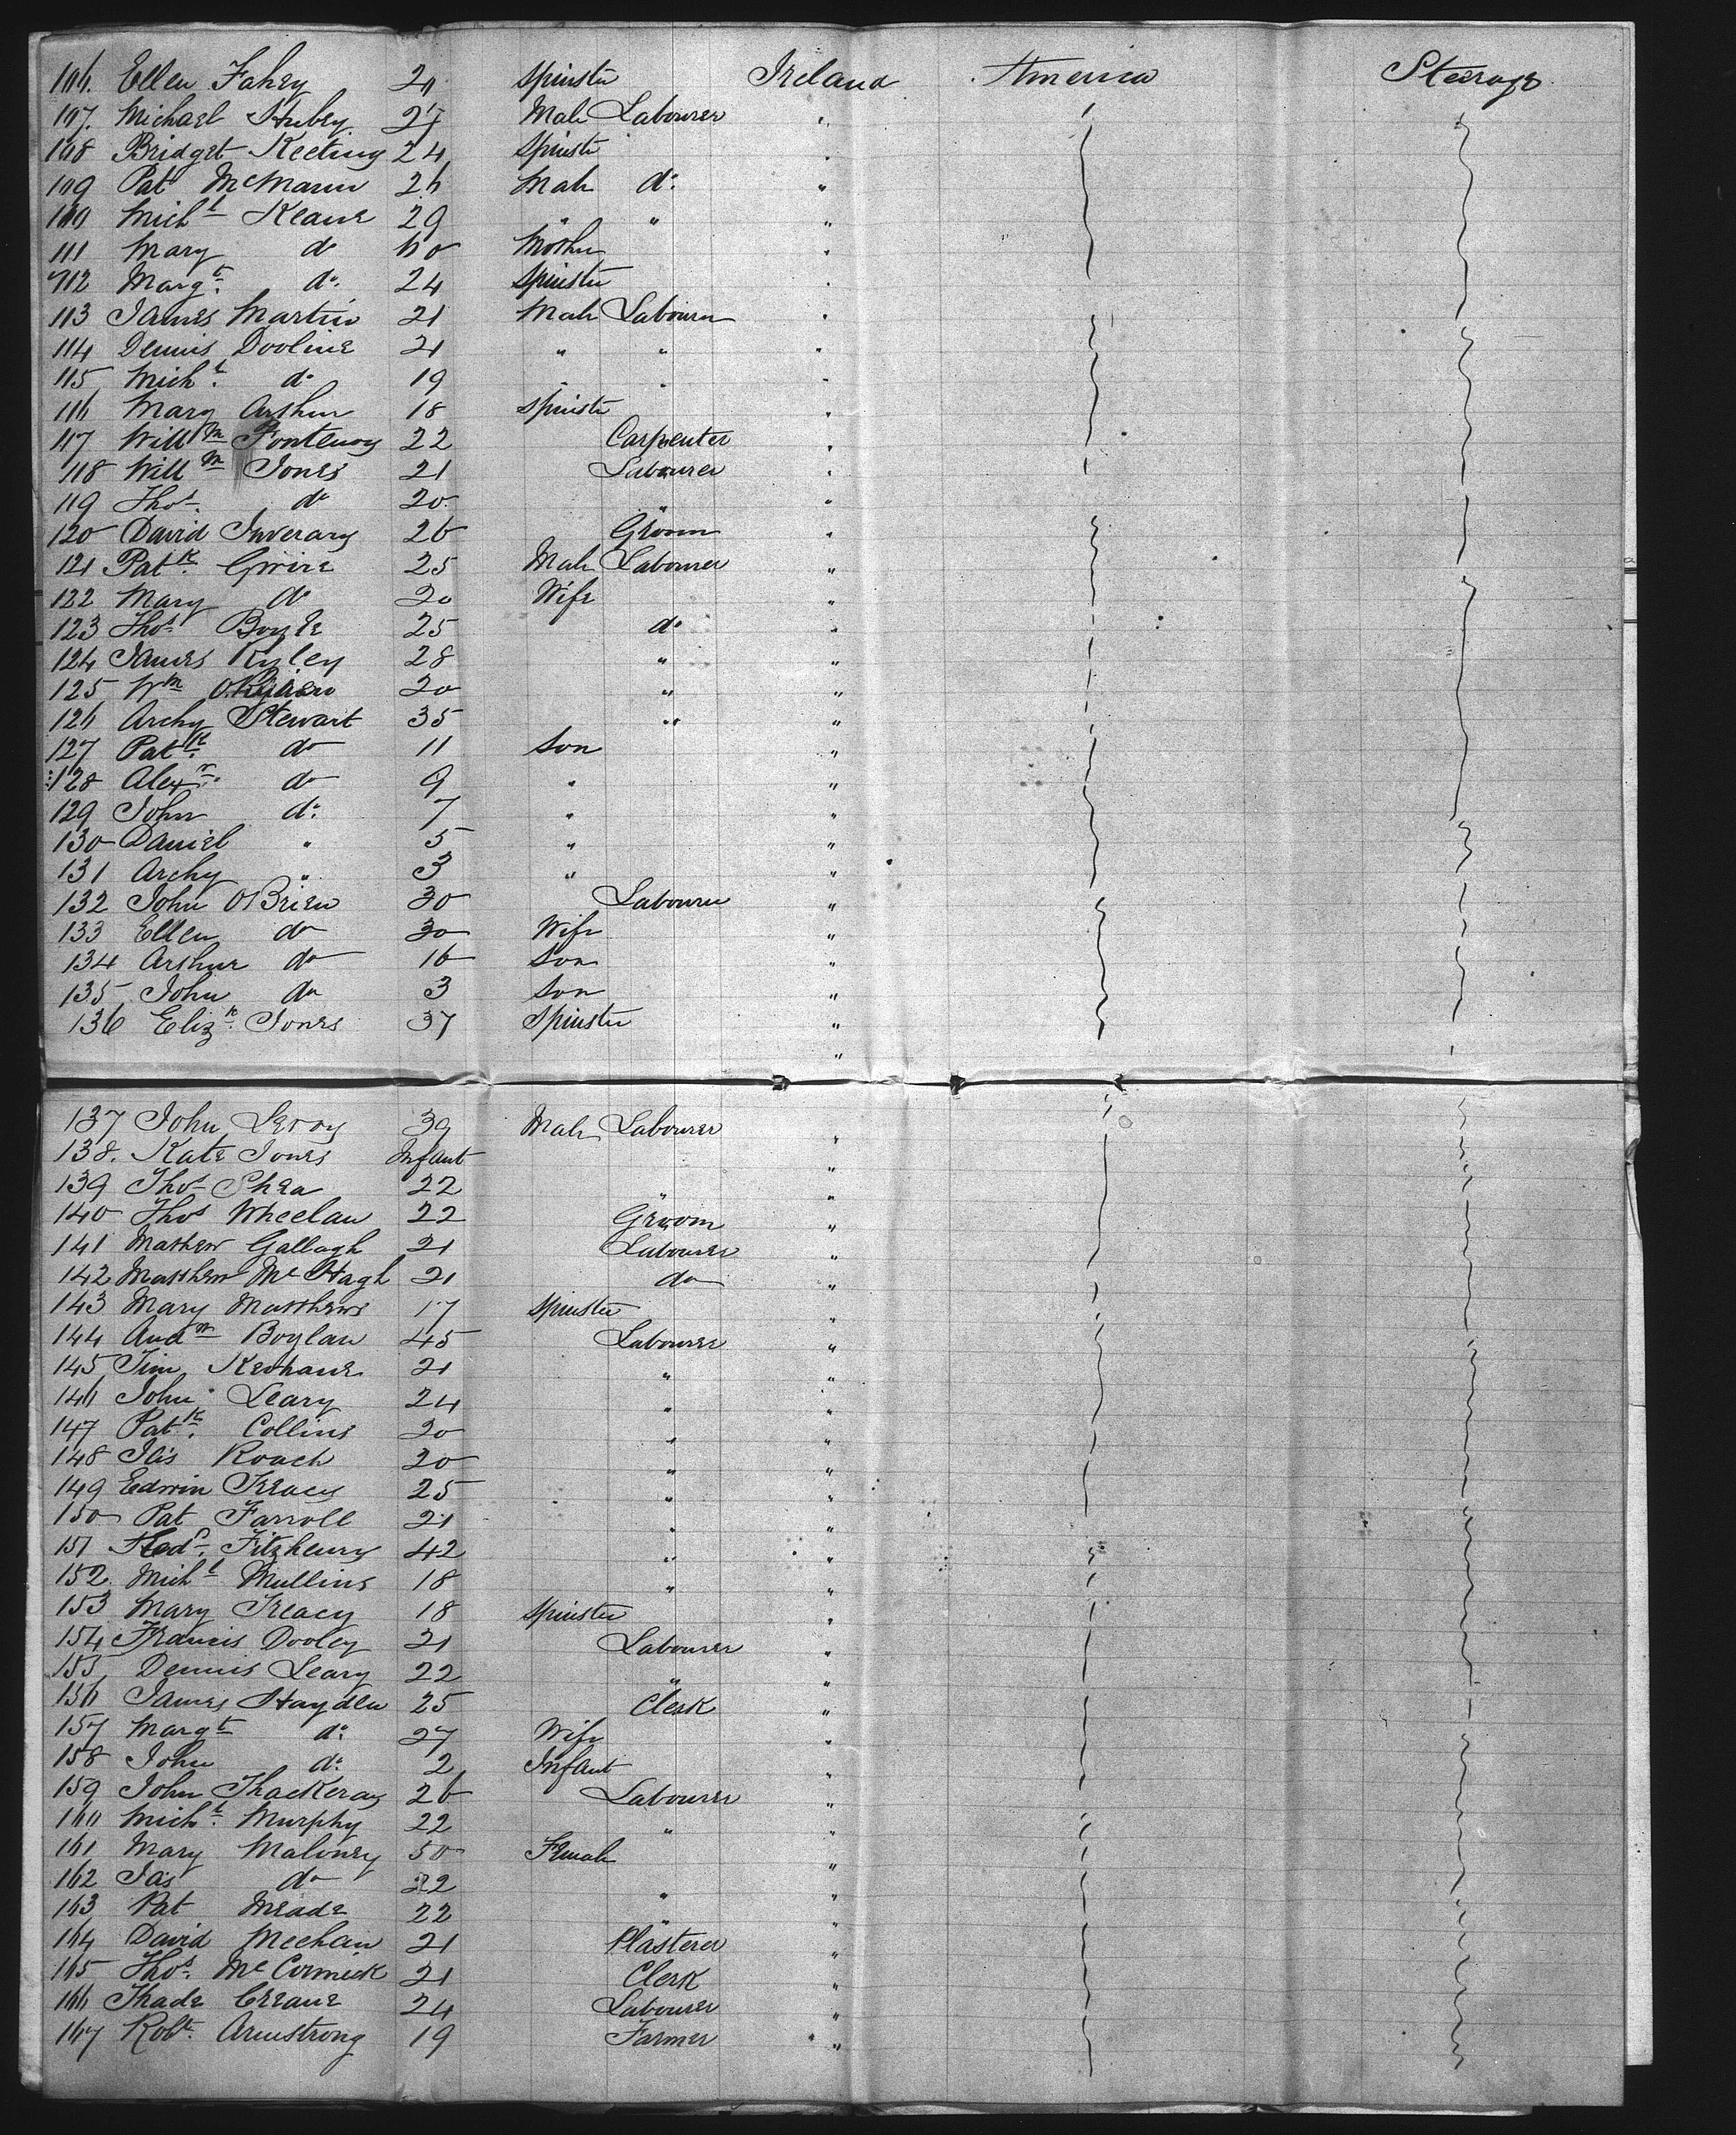 106. Ellen Fahey 20 Spinster Ireland America Steerage
107. Michael 27 Male Labourer "
108 Bridget Keeting 24 Spinster "
109 Pat McMann 26 Male do "
110 Micht Keane 29 " " "
111 Mary do 60 Mother "
112 Margt. do. 24 Spinster "
113 James Martin 21 Male Labourer "
114 Dennis Dooline 21 " " "
115 Micht. do 19 " " "
116 Mary Arthur 18 Spinster "
117 Willm Fontenoy 22 Carpenter "
118 Willm Jones 21 Labourer "
119 Thos. do 20 " "
120 David Inverary 26 Groom "
121 Patk. 25 Male Labourer "
122 Mary do 20 Wife "
123 Thos. Boyle 25 do "
124 James Kyley 28 " "
125 Wm 20 " "
126 Archy Stewart 35 " "
127 Patk. do 11 Son "
128 Alexr. do 9 " "
129 John do. 7 " "
130 Daniel " 5 " "
131 Archy " 3 " "
132 John O'Brien 30 Labourer "
133 Ellen do 30 Wife "
134 Arthur do 16 Son "
135 John do 3 Son "
136 Eliz. Jones 37 Spinster "
"
137 John Leroy 39 Male Labourer "
138. Kate Jones Infant "
139 Thos Shea 22 " "
140 Thos Wheelan 22 Groom "
141 Mathew Gallagh 21 Labourer "
142 Matthew McHagh 21 do "
143 Mary Matthews 17 Spinster "
144 Andw Boylan 45 Labourer "
145 Tim Keohane 21 " "
146 John Leary 24 " "
147 Patk. Collins 20 " "
148 Jas Roach 20 " "
149 Edwin Treacy 25 " "
150 Pat Farroll 21 " "
151 Fitzhenry 42 " "
152. Micht Mullins 18 " "
153 Mary Treacy 18 Spinster "
154 Francis Dooley 21 Labourer "
155 Dennis Leary 22 " "
156 James Hayden 25 Clerk "
157 Margt do. 27 Wife "
158 John do. 2 Infant "
159 John Thackeray 26 Labourer "
160 Micht. Murphy 22 " "
161 Mary Maloney 50 Female "
162 Jas do 22 " "
163 Pat Meade 22 " "
164 David Meehan 21 Plasterer "
165 Thos. McCormick 21 Clerk "
166 Thade Creane 24 Labourer "
167 Robt. Armstrong 19 Farmer "